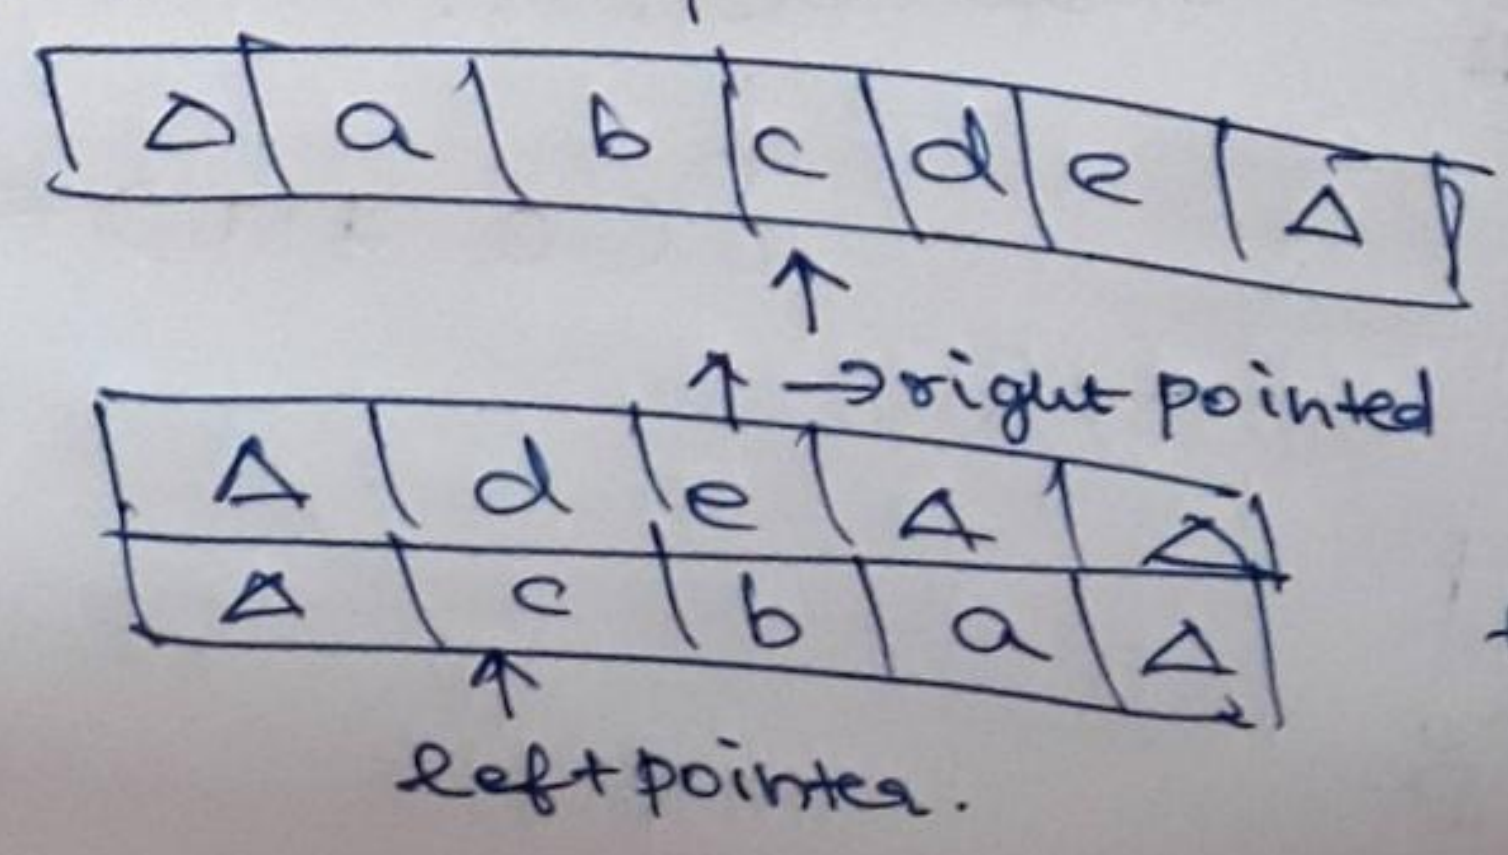 Δ a b c d e Δ
↑
↑ → right pointed
Δ d e Δ Δ
Δ c b a Δ
↑
left pointer.